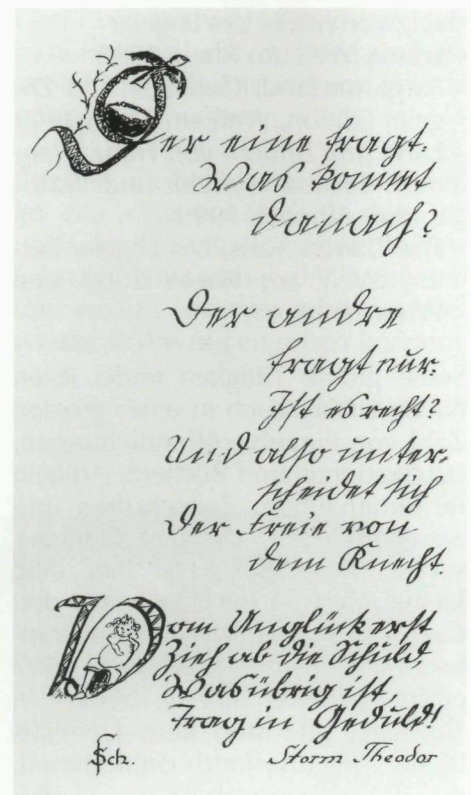 Der eine fragt:
Was kommt
danach?
Der andre
fragt nur:
Ist es recht?
Und also unter-
scheidet sich
Der Freie von
dem Knecht.
Vom Unglück erst
Zieh ab die Schuld,
Was übrig ist,
Trag in Geduld!
Sch. Storm Theodor